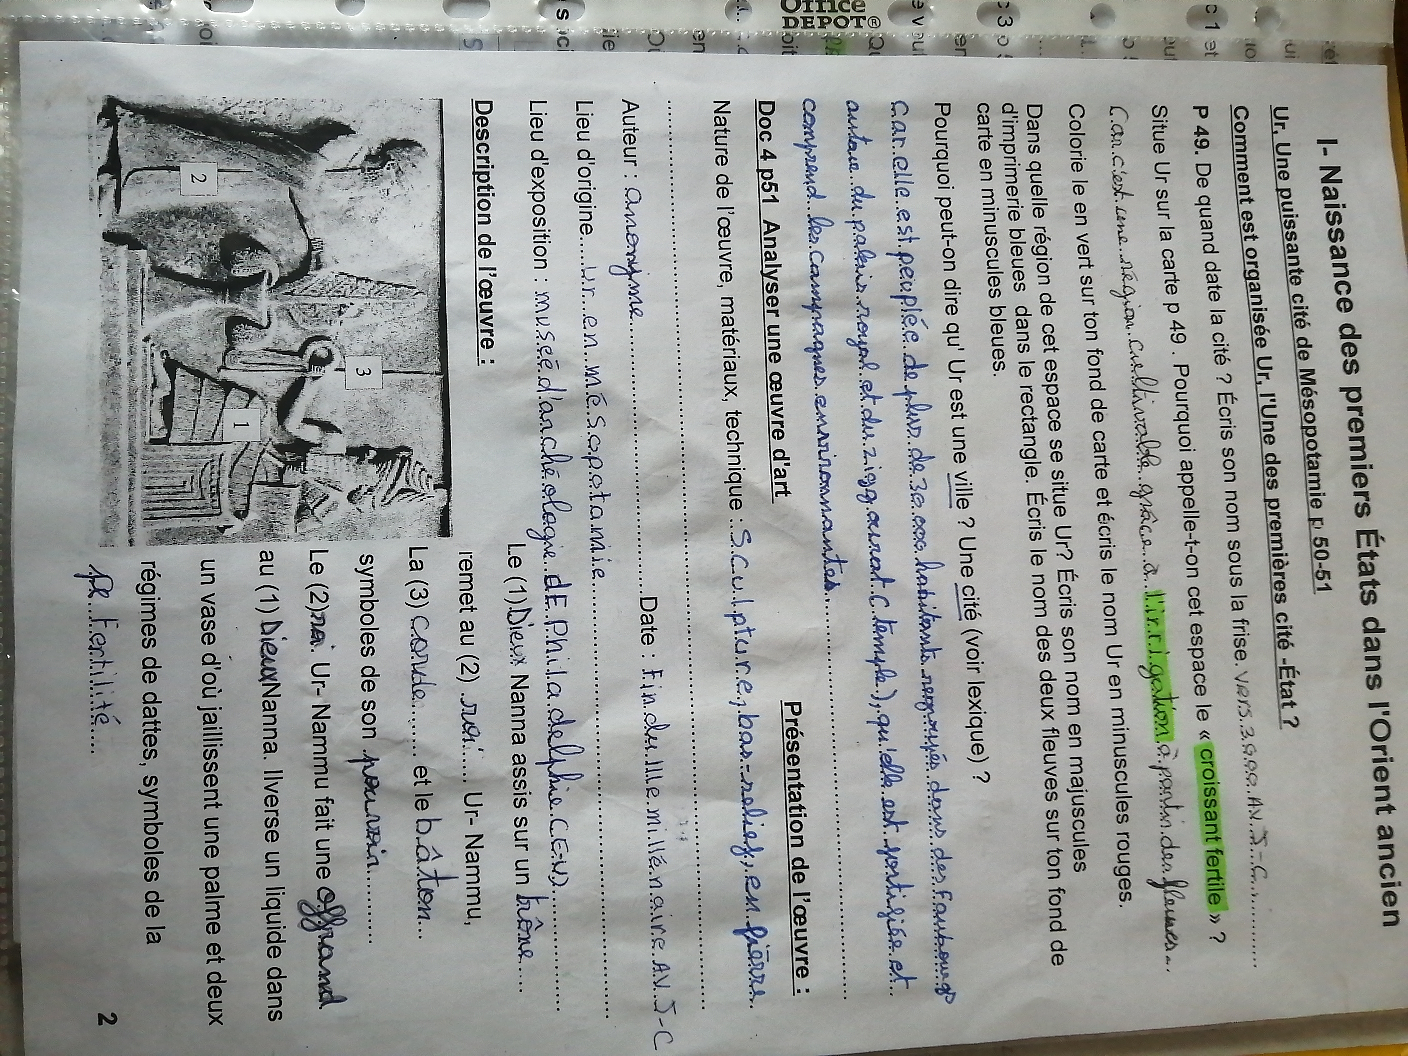 I- Naissance des premiers États dans l'Orient ancien
Ur, Une puissante cité de Mésopotamie p 50-51
Comment est organisée Ur, l'Une des premières cité -État ?
P 49. De quand date la cité ? Écris son nom sous la frise. vers 3000 AV. J-C
Situe Ur sur la carte p 49 . Pourquoi appelle-t-on cet espace le « croissant fertile » ?
Car c'est une région cultivable grâce à l'irrigation à parti des fleuves
Colorie le en vert sur ton fond de carte et écris le nom Ur en minuscules rouges.
Dans quelle région de cet espace se situe Ur? Écris son nom en majuscules
d'imprimerie bleues dans le rectangle. Écris le nom des deux fleuves sur ton fond de
carte en minuscules bleues.
Pourquoi peut-on dire qu' Ur est une ville ? Une cité (voir lexique) ?
Car elle est peuplée de plus de 30 000 habitants regroupés dans des faubourgs
autour du palais royal et du ziggourat (temple), qu'elle est fortifiée et
comprend les campagnes environnantes
Doc 4 p51 Analyser une œuvre d'art
Présentation de l'œuvre :
Nature de l'œuvre, matériaux, technique : Sculpture, bas-relief, en pierre
Auteur : anonyme Date : Fin du IIIe millénaire AV. J-C
Lieu d'origine Ur en mésopotamie
Lieu d'exposition : musée d'archéologie dE Philadelphie (E-U)
Description de l'œuvre :
2
3
1
Le (1) Dieux Nanna assis sur un trône
remet au (2) roi Ur- Nammu,
La (3) corde et le bâton
symboles de son pouvoir
Le (2) roi Ur- Nammu fait une offrand
au (1) Dieux Nanna. Ilverse un liquide dans
un vase d'où jaillissent une palme et deux
régimes de dattes, symboles de la
Fertilité
2
Office
DEPOT®